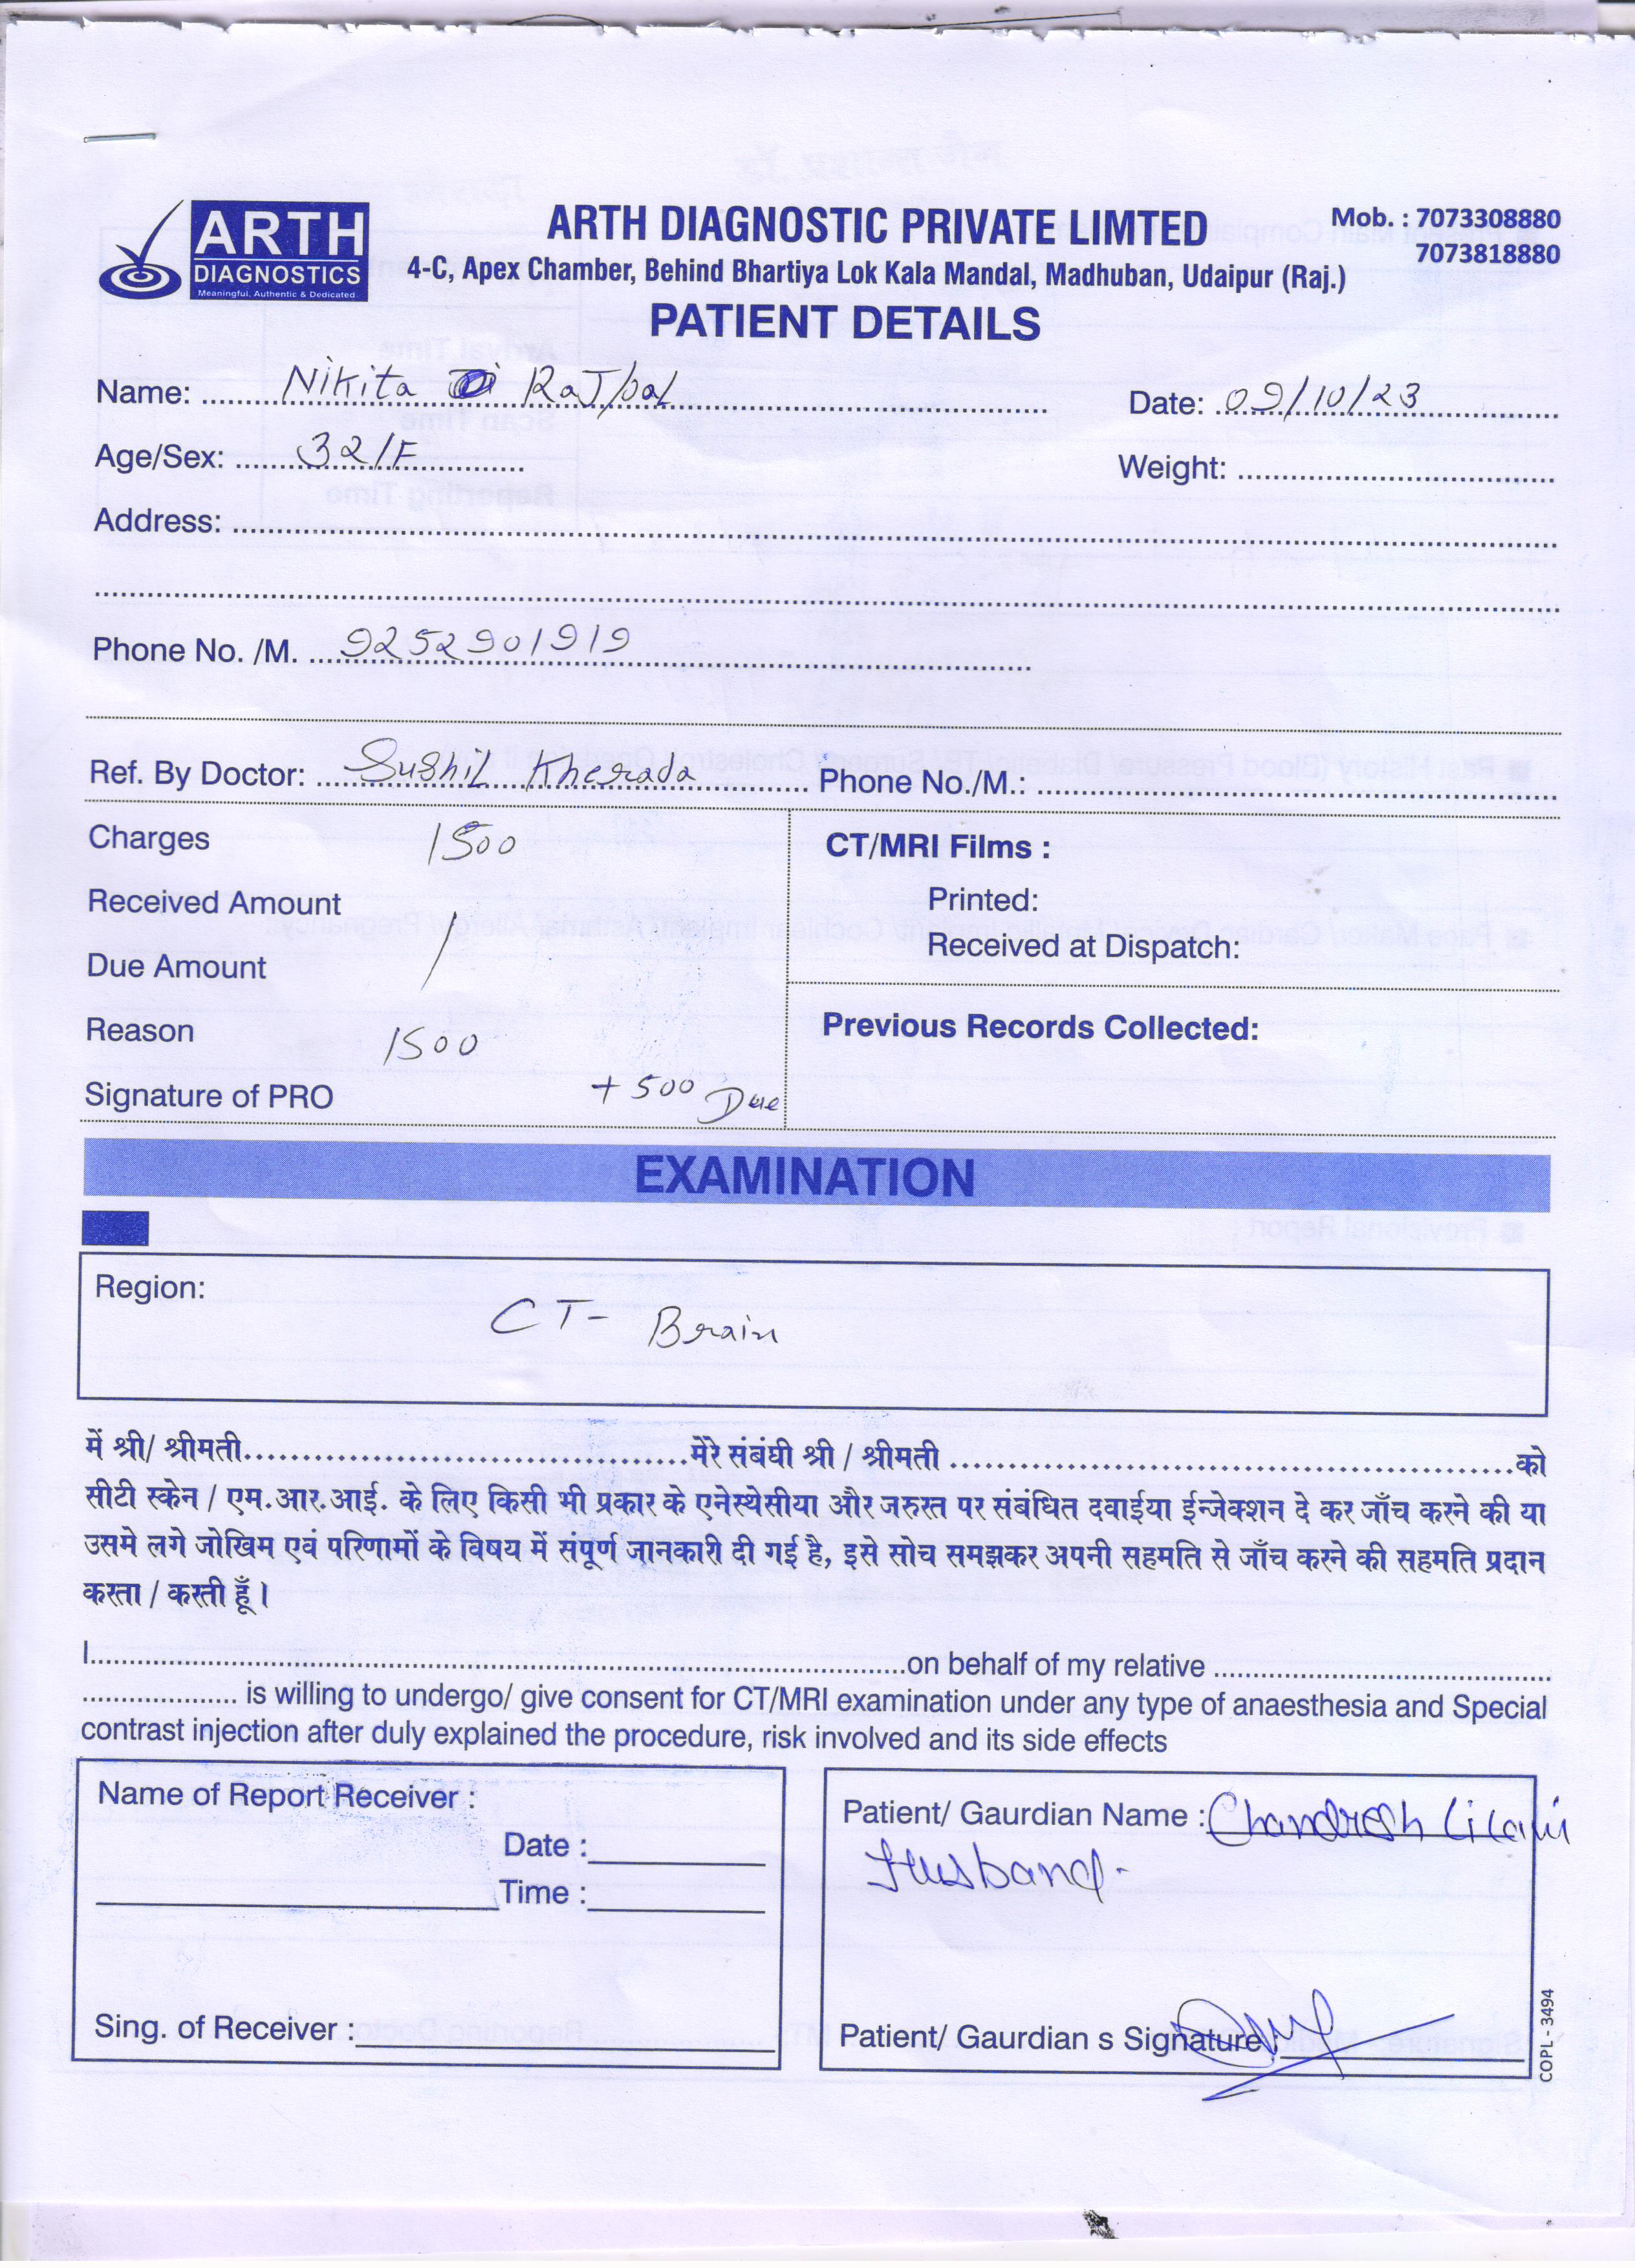 ARTH
DIAGNOSTICS
Meaningful, Authentic & Dedicated
ARTH DIAGNOSTIC PRIVATE LIMTED
Mob. : 7073308880
7073818880
4-C, Apex Chamber, Behind Bhartiya Lok Kala Mandal, Madhuban, Udaipur (Raj.)
PATIENT DETAILS
Name: Nikita RaJpal Date: 09/10/23
Age/Sex: 32/F Weight:
Address:
Phone No. /M. 9252901919
Ref. By Doctor: Sushil Kherada Phone No./M.:
Charges 1500
Received Amount
Due Amount
Reason 1500
Signature of PRO +500 Due
CT/MRI Films :
Printed:
Received at Dispatch:
Previous Records Collected:
EXAMINATION
Region:
CT- Brain
में श्री/ श्रीमती मेरे संबंघी श्री / श्रीमती को
सीटी स्केन / एम.आर.आई. के लिए किसी भी प्रकार के एनेस्थेसीया और जरुरत पर संबंधित दवाईया ईन्जेक्शन दे कर जाँच करने की या
उसमे लगे जोखिम एवं परिणामों के विषय में संपूर्ण जानकारी दी गई है, इसे सोच समझकर अपनी सहमति से जाँच करने की सहमति प्रदान
करता / करती हूँ।
I on behalf of my relative
is willing to undergo/ give consent for CT/MRI examination under any type of anaesthesia and Special
contrast injection after duly explained the procedure, risk involved and its side effects
Name of Report Receiver :
Date :
Time :
Sing. of Receiver :
Patient/ Gaurdian Name : Chandresh
Husband-
Patient/ Gaurdian s Signature
COPL - 3494